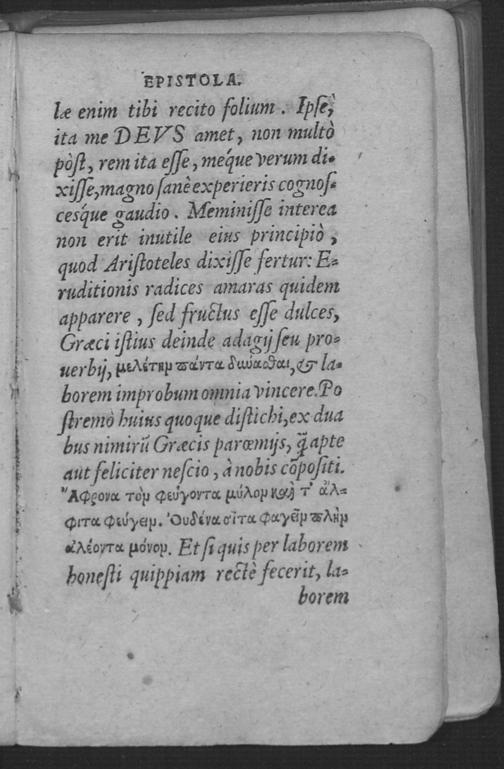 EPISTOLA.
læ enim tibi recito folium. Ipse,
ita me DEVS amet, non multò
pòst, rem ita esse, meq́ue verum di-
xisse, magno sanè experieris cognos-
cesq́ue gaudio. Meminisse interea
non erit inutile eius principiò,
quod Aristoteles dixisse fertur: E-
ruditionis radices amaras quidem
apparere, sed fructus esse dulces,
Græci istius deinde adagij seu pro-
uerbij, μελέτημ πάντα δύναϲθαι, & la-
borem improbum omnia vincere. Po
stremò huius quoque distichi, ex dua
bus nimirũ Græcis parœmijs, q̃ apte
aut feliciter nescio, à nobis cõpositi.
Ἄφρονα τὸμ φεύγοντα μύλομ καὶ τ' ἄλ-
φιτα φεύγειμ. Ὀυδένα σῖτα φαγεῖμ πλὴμ
ἀλέοντα μόνομ. Et si quis per laborem
honesti quippiam rectè fecerit, la-
borem